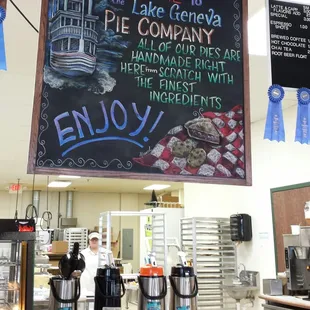 the Lake Geneva
Pie Company
All of our pies are
handmade right
here from scratch with
the finest
ingredients
Enjoy!
Latte & Cap
Flavors
Special
Brewed Coffee
Hot Chocolate
Chai Tea
Root Beer
Espresso
EXIT